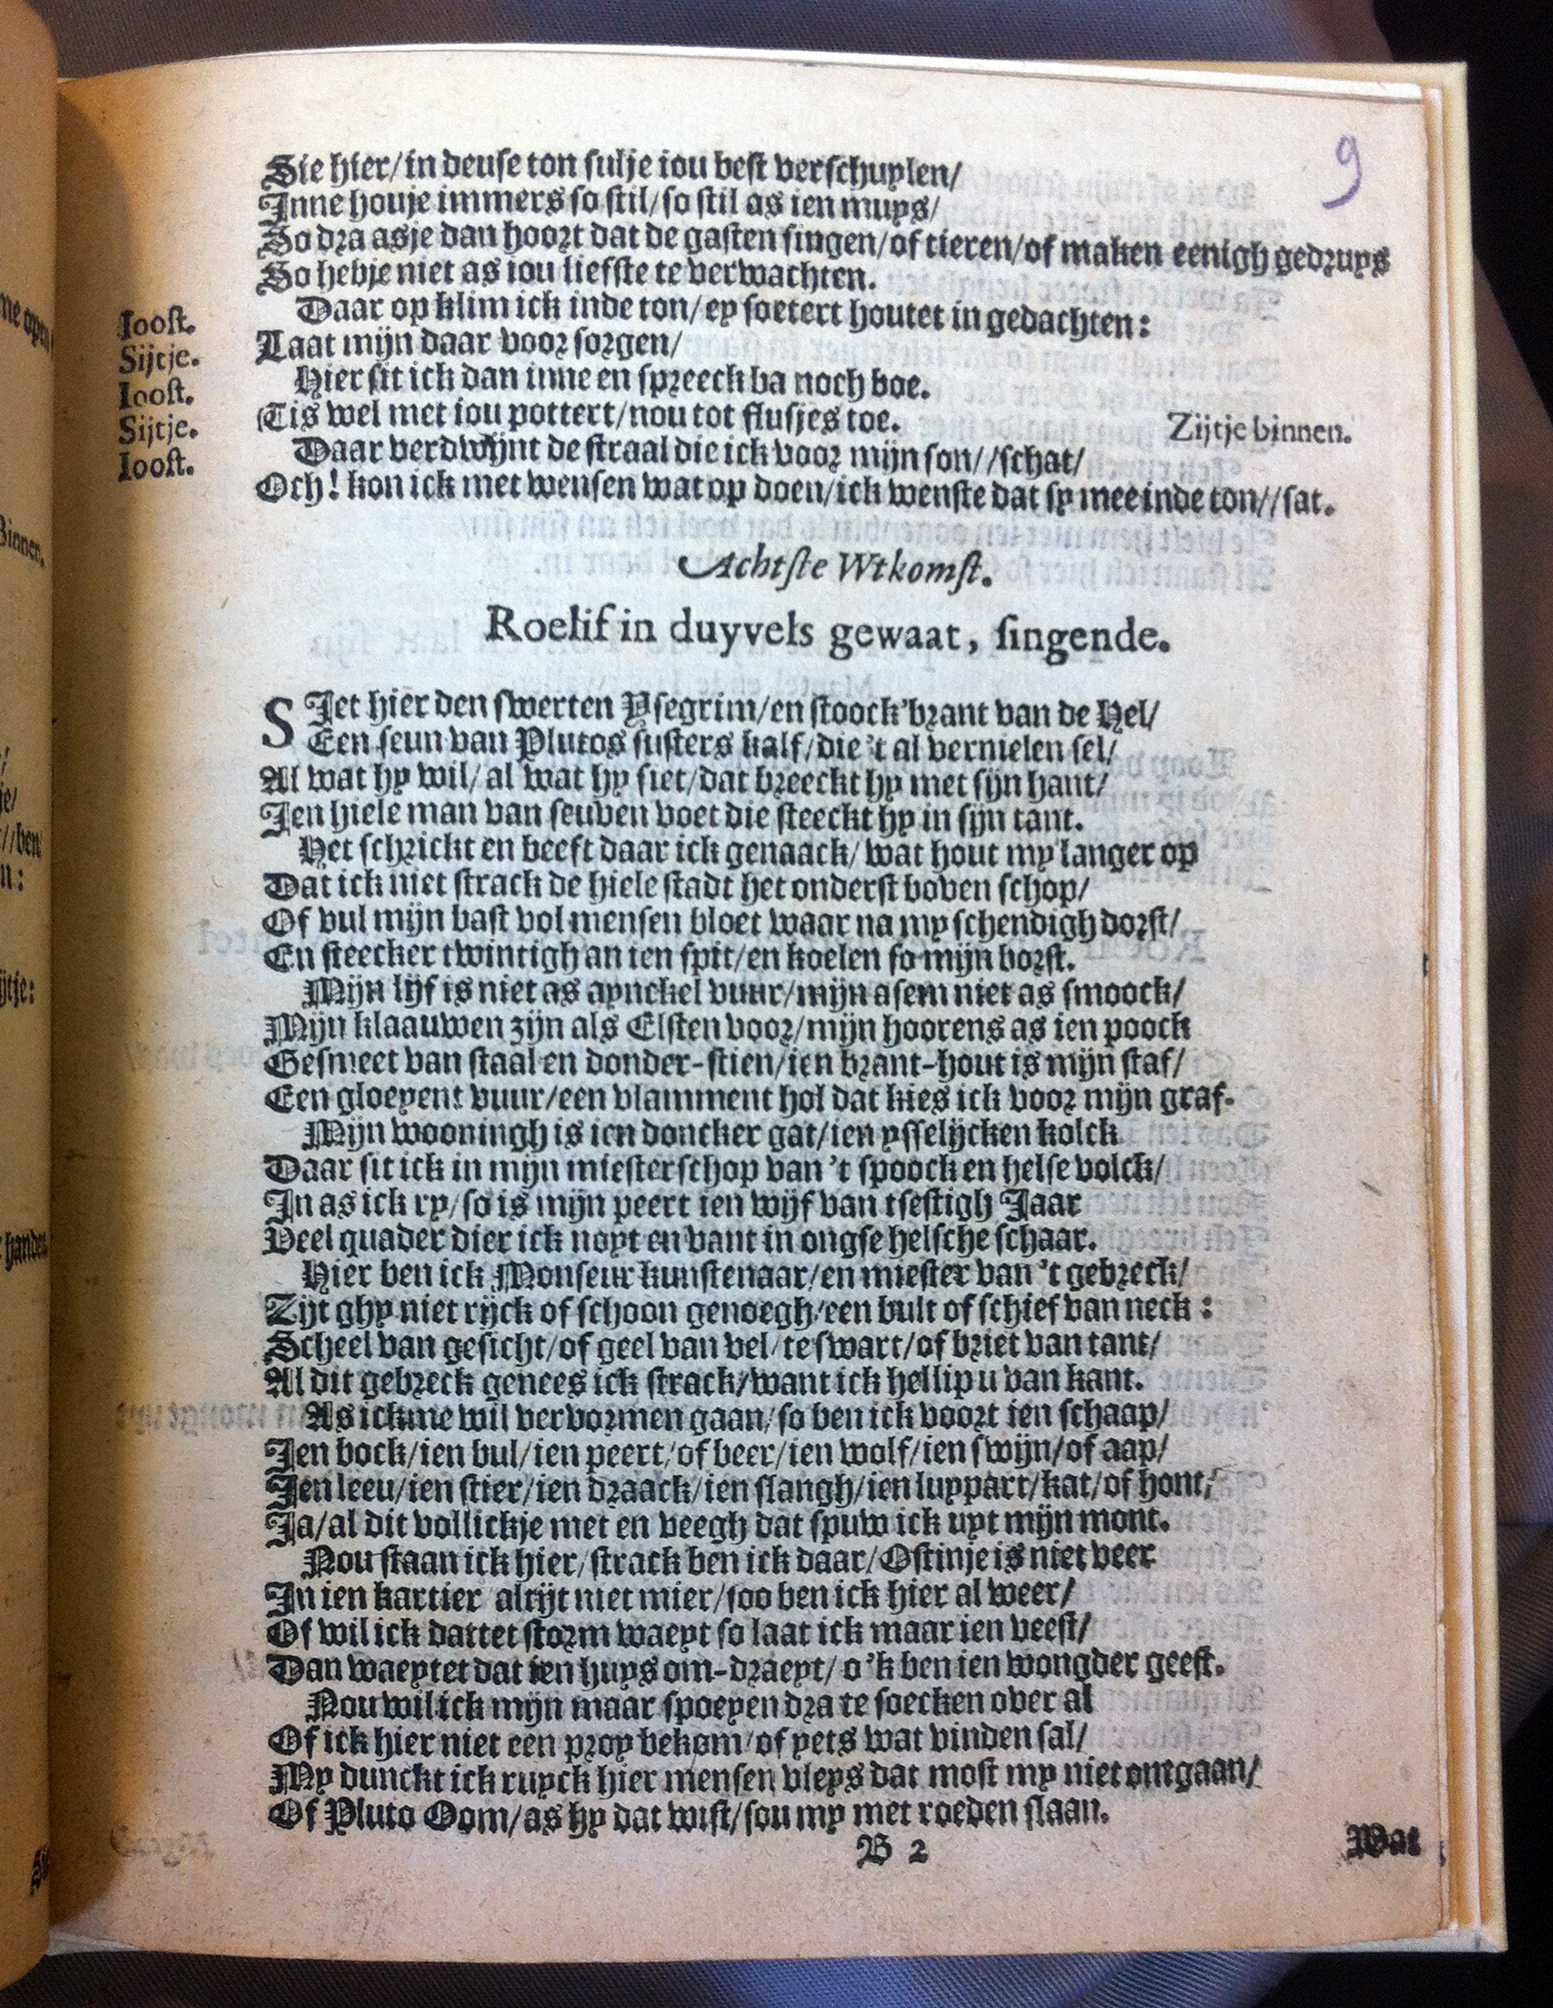 9
Sie hier/in deuse ton sulje iou best verschuylen/
Inne houje immers so stil/so stil as ien muys/
So dra asje dan hoort dat de gasten singen/of tieren/of maken eenigh gedruys
So hebje niet as iou liefste te verwachten.
Ioost. Daar op klim ick inde ton/ey soetert houtet in gedachten:
Sijtje. Laat mijn daar voor sorgen/
Ioost. Hier sit ick dan inne en spreeck ba noch boe.
Sijtje. Tis wel met iou pottert/nou tot flusjes toe. Zijtje binnen.
Ioost. Daar verdwijnt de straal die ick voor mijn son//schat/
Och! kon ick met wensen wat op doen/ick wenste dat sy mee inde ton//sat.
Achtste Wtkomst.
Roelif in duyvels gewaat, singende.
SIet hier den swerten Ysegrim/en stoock'brant van de Hel/
Een seun van Plutos susters kalf/die 't al vernielen sel/
Al wat hy wil/al wat hy siet/dat breeckt hy met sijn hant/
Ien hiele man van seuven voet die steeckt hy in sijn tant.
Het schrickt en beeft daar ick genaack/wat hout my langer op
Dat ick niet strack de hiele stadt het onderst boven schop/
Of vul mijn bast vol mensen bloet waar na my schendigh dorst/
En steecker twintigh an ien spit/en koelen so mijn borst.
Mijn lijf is niet as aynckel vuur/mijn asem niet as smoock/
Mijn klaauwen zijn als Elsten voor/mijn hoorens as ien poock
Gesmeet van staal en donder-stien/ien brant-hout is mijn staf/
Een gloeyent vuur/een vlamment hol dat kies ick voor mijn graf.
Mijn wooningh is ien doncker gat/ien ysselijcken kolck
Daar sit ick in mijn miesterschop van 't spoock en helse volck/
In as ick ry/so is mijn peert ien wijf van tsestigh Jaar
Veel quader dier ick noyt en vant in ongse helsche schaar.
Hier ben ick Monseur kunstenaar/en miester van 't gebreck/
Zijt ghy niet rijck of schoon genoegh/een bult of schief van neck:
Scheel van gesicht/of geel van vel/te swart/of briet van tant/
Al dit gebreck genees ick strack/want ick hellip u van kant.
As ickme wil vervormen gaan/so ben ick voort ien schaap/
Ien bock/ien bul/ien peert/of beer/ien wolf/ien swijn/of aap/
Ien leeu/ien stier/ien draack/ien slangh/ien luypart/kat/of hont/
Ja/al dit vollickje met en veegh dat spuw ick uyt mijn mont.
Nou staan ick hier/strack ben ick daar/Ostinje is niet veer
In ien kartier altijt niet mier/soo ben ick hier al weer/
Of wil ick dattet storm waeyt so laat ick maar ien veest/
Dan waeytet dat ien huys om-draeyt/o 'k ben ien wongder geest.
Nou wil ick mijn maar spoeyen dra te soecken over al
Of ick hier niet een proy bekom/of yets wat vinden sal/
My dunckt ick ruyck hier mensen vleys dat most my niet omgaan/
Of Pluto Oom/as hy dat wist/sou my met roeden slaan.
B 2 Wat